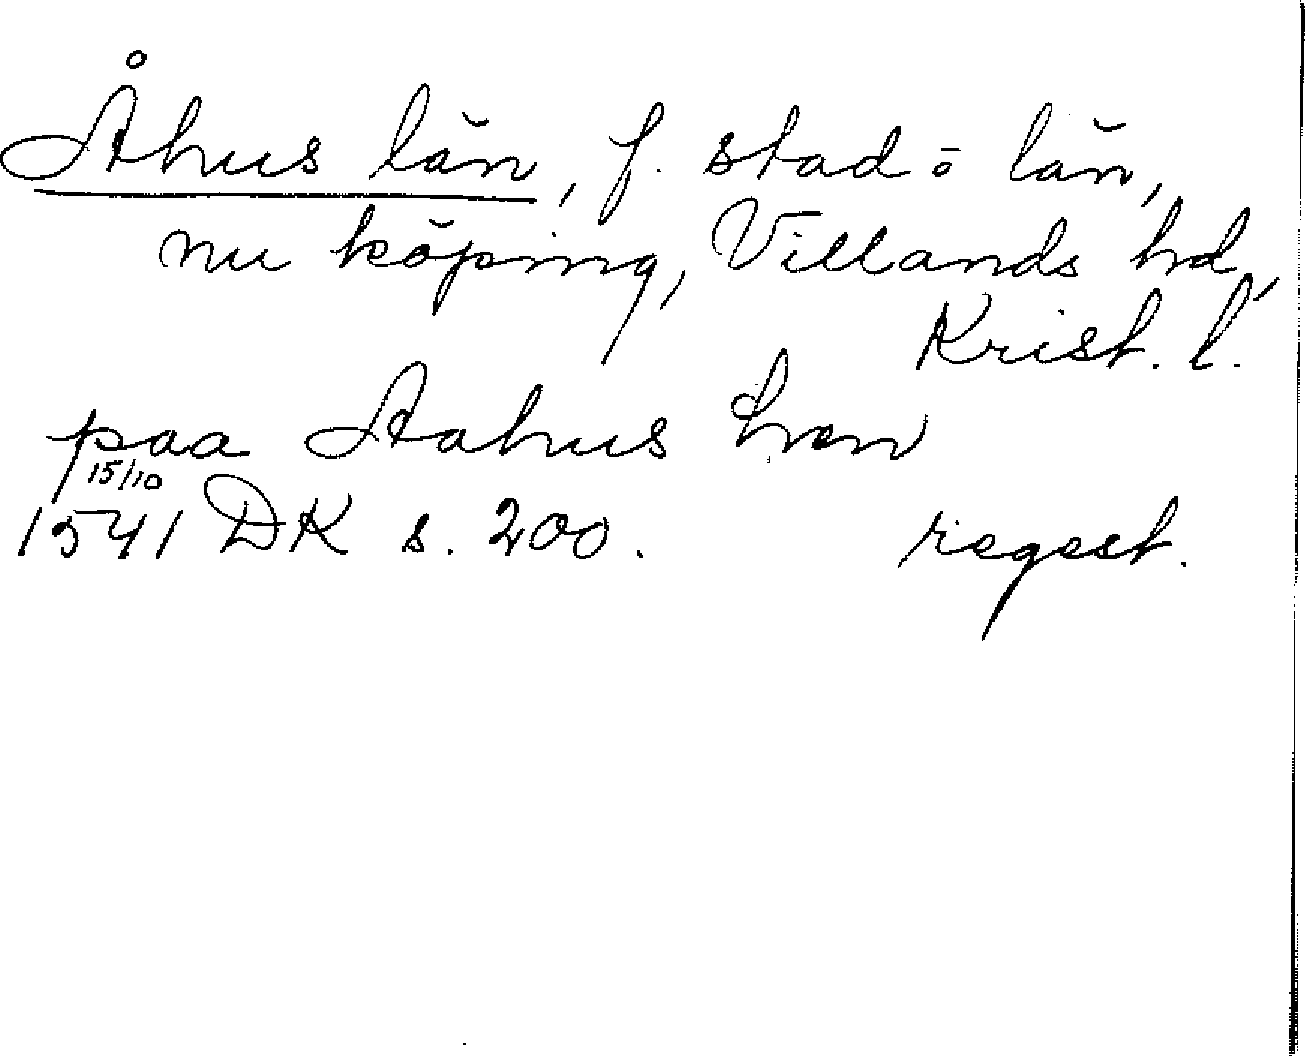 Åhus län, f. stad o län,
nu köping, Villands hd,
Krist. l.
paa Aahus
15/10
1541 DK s. 200. regest.